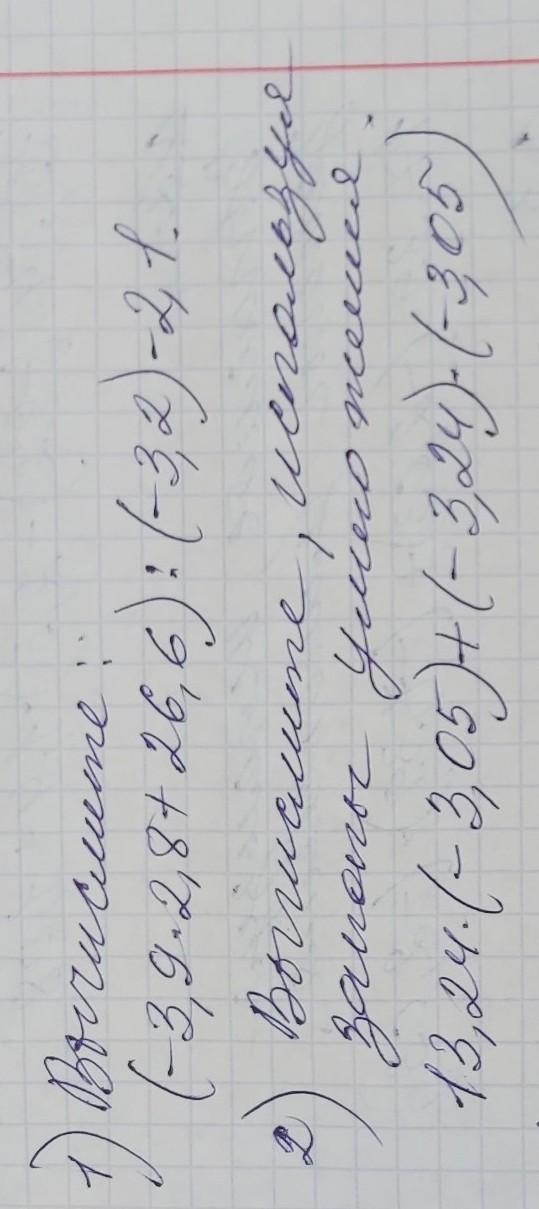 1) Вычислите:
(-3,9·2,8+26,6):(-3,2)-2,1.
2) Вычислите, используя
законы умножения:
13,24·(-3,05)+(-3,24)·(-3,05)